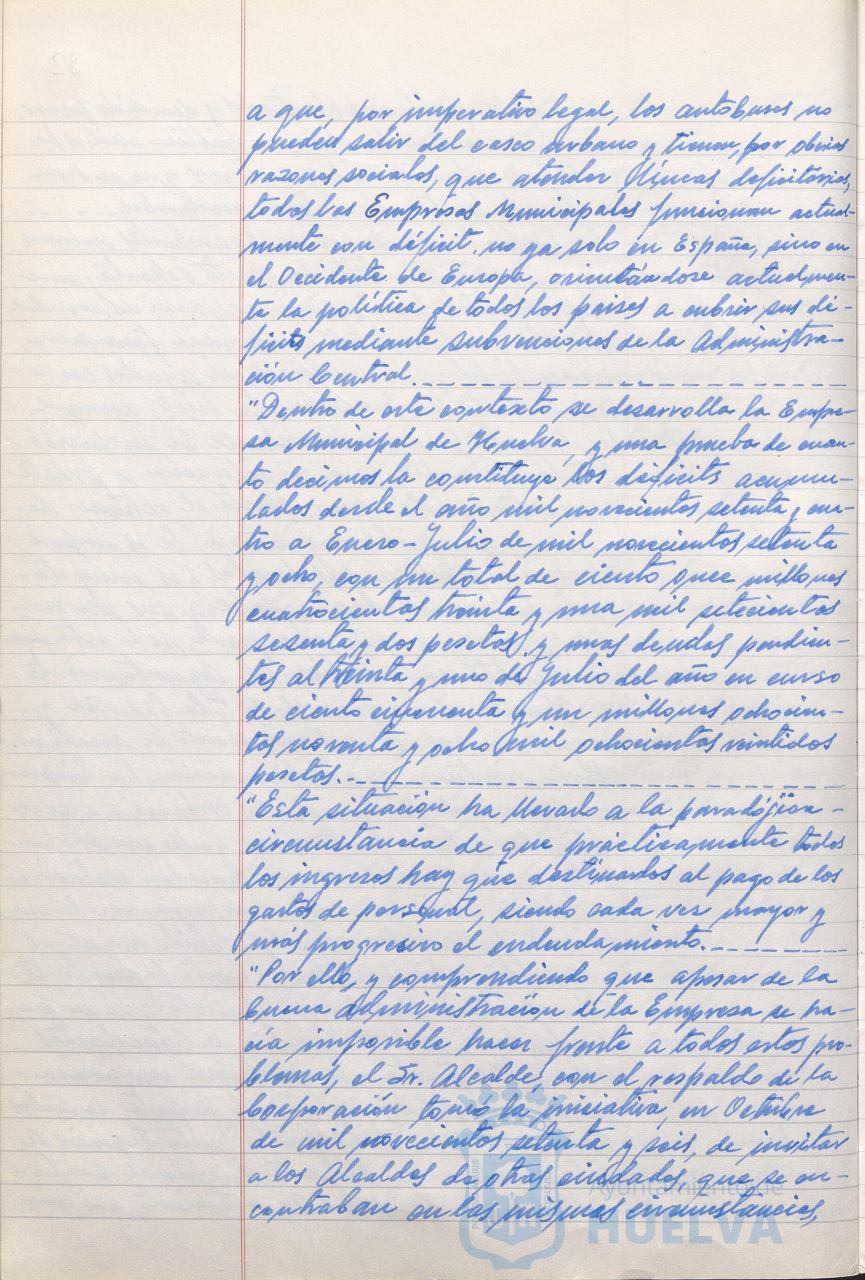 a que, por imperativo legal, los autobuses no
pueden salir del casco urbano y tienen, por obvias
razones sociales, que atender líneas deficitarias,
todas las Empresas Municipales funcionan actual-
mente con déficit no ya solo en España, sino en
el Occidente de Europa, orientándose actualmen-
te la política de todos los países a cubrir sus dé-
ficits mediante subvenciones de la Administra-
ción Central.
"Dentro de este contexto se desarrolla la Empre-
sa Municipal de Huelva, y una prueba de cuan-
to decimos la constituye los déficits acumu-
lados desde el año mil novecientos setenta y cua-
tro a Enero-Julio de mil novecientos setenta
y ocho, con un total de ciento once millones
cuatrocientas treinta y una mil setecientas
sesenta y dos pesetas, y unas deudas pendien-
tes al treinta y uno de Julio del año en curso
de ciento cincuenta y un millones ochocien-
tas noventa y ocho mil ochocientas veintidos
pesetas.
"Esta situación ha llevado a la paradójica
circunstancia de que prácticamente todos
los ingresos hay que destinarlos al pago de los
gastos de personal, siendo cada vez mayor y
más progresivo el endeudamiento.
"Por ello, y comprendiendo que apesar de la
buena administración de la Empresa se ha-
cía imposible hacer frente a todos estos pro-
blemas, el Sr. Alcalde, con el respaldo de la
Corporación tomó la iniciativa, en Octubre
de mil novecientos setenta y seis, de invitar
a los Alcaldes de otras ciudades, que se en-
contraban en las mismas circunstancias,
Ayuntamiento de
HUELVA